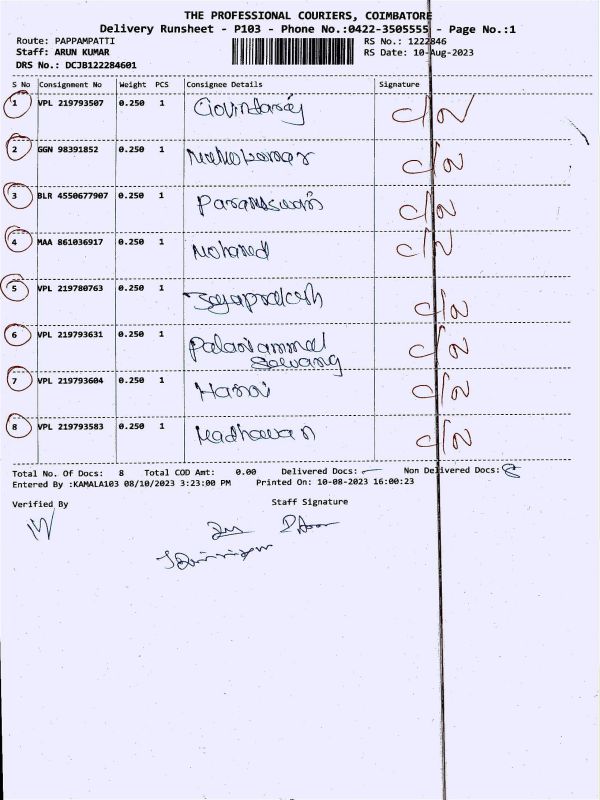 THE PROFESSIONAL COURIERS, COIMBATORE
Delivery Runsheet - P103 - Phone No.:0422-3505555 - Page No.:1
Route: PAPPAMPATTI RS No.: 1222846
Staff: ARUN KUMAR RS Date: 10-Aug-2023
DRS No.: DCJB122284601
S No Consignment No Weight PCS Consignee Details Signature
1 VPL 219793507 0.250 1 Govindaraj C/N
2 GGN 98391852 0.250 1 C/N
3 BLR 4550677907 0.250 1 C/N
4 MAA 861036917 0.250 1 Mohamed C/N
5 VPL 219780763 0.250 1 Jayaprakash C/N
6 VPL 219793631 0.250 1 Palaniammal C/N
7 VPL 219793604 0.250 1 C/N
8 VPL 219793583 0.250 1 Madhavan C/N
Total No. Of Docs: 8 Total COD Amt: 0.00 Delivered Docs: — Non Delivered Docs: 8
Entered By :KAMALA103 08/10/2023 3:23:00 PM Printed On: 10-08-2023 16:00:23
Verified By Staff Signature